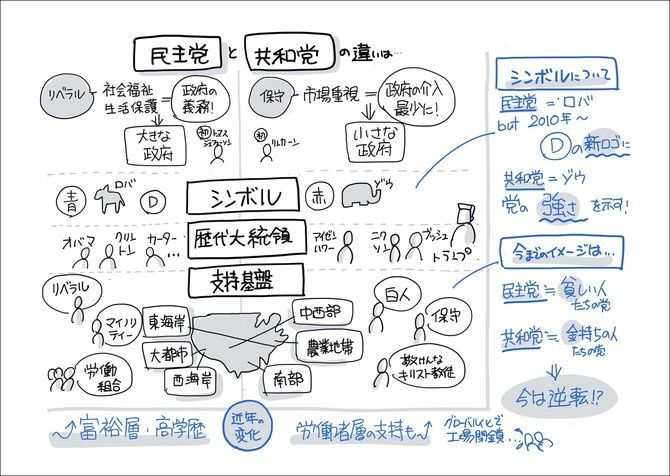 民主党 と 共和党 の違いは…
リベラル
社会福祉
生活保護
=
政府の
義務!
大きな
政府
初 トマス
ジェファーソン
保守
市場重視
=
政府の介入
最少に!
小さな
政府
初 リンカーン
青
ロバ
D
シンボル
赤
ゾウ
オバマ
クリン
トン
カーター
…
歴代大統領
アイゼン
ハワー
ニク
ソン
ブッシュ
トランプ
支持基盤
リベラル
マイノリ
ティー
労働
組合
東海岸
大都市
西海岸
中西部
農業地帯
南部
白人
保守
敬けんな
キリスト教徒
富裕層・高学歴
近年の
変化
労働者層の支持も
グローバル化で
工場閉鎖…
シンボルについて
民主党 = ロバ
but 2010年~
Dの新ロゴに
共和党 = ゾウ
党の 強さ を示す!
今までのイメージは…
民主党 ≒ 貧しい人
たちの党
共和党 ≒ 金持ちの人
たちの党
今は逆転!?